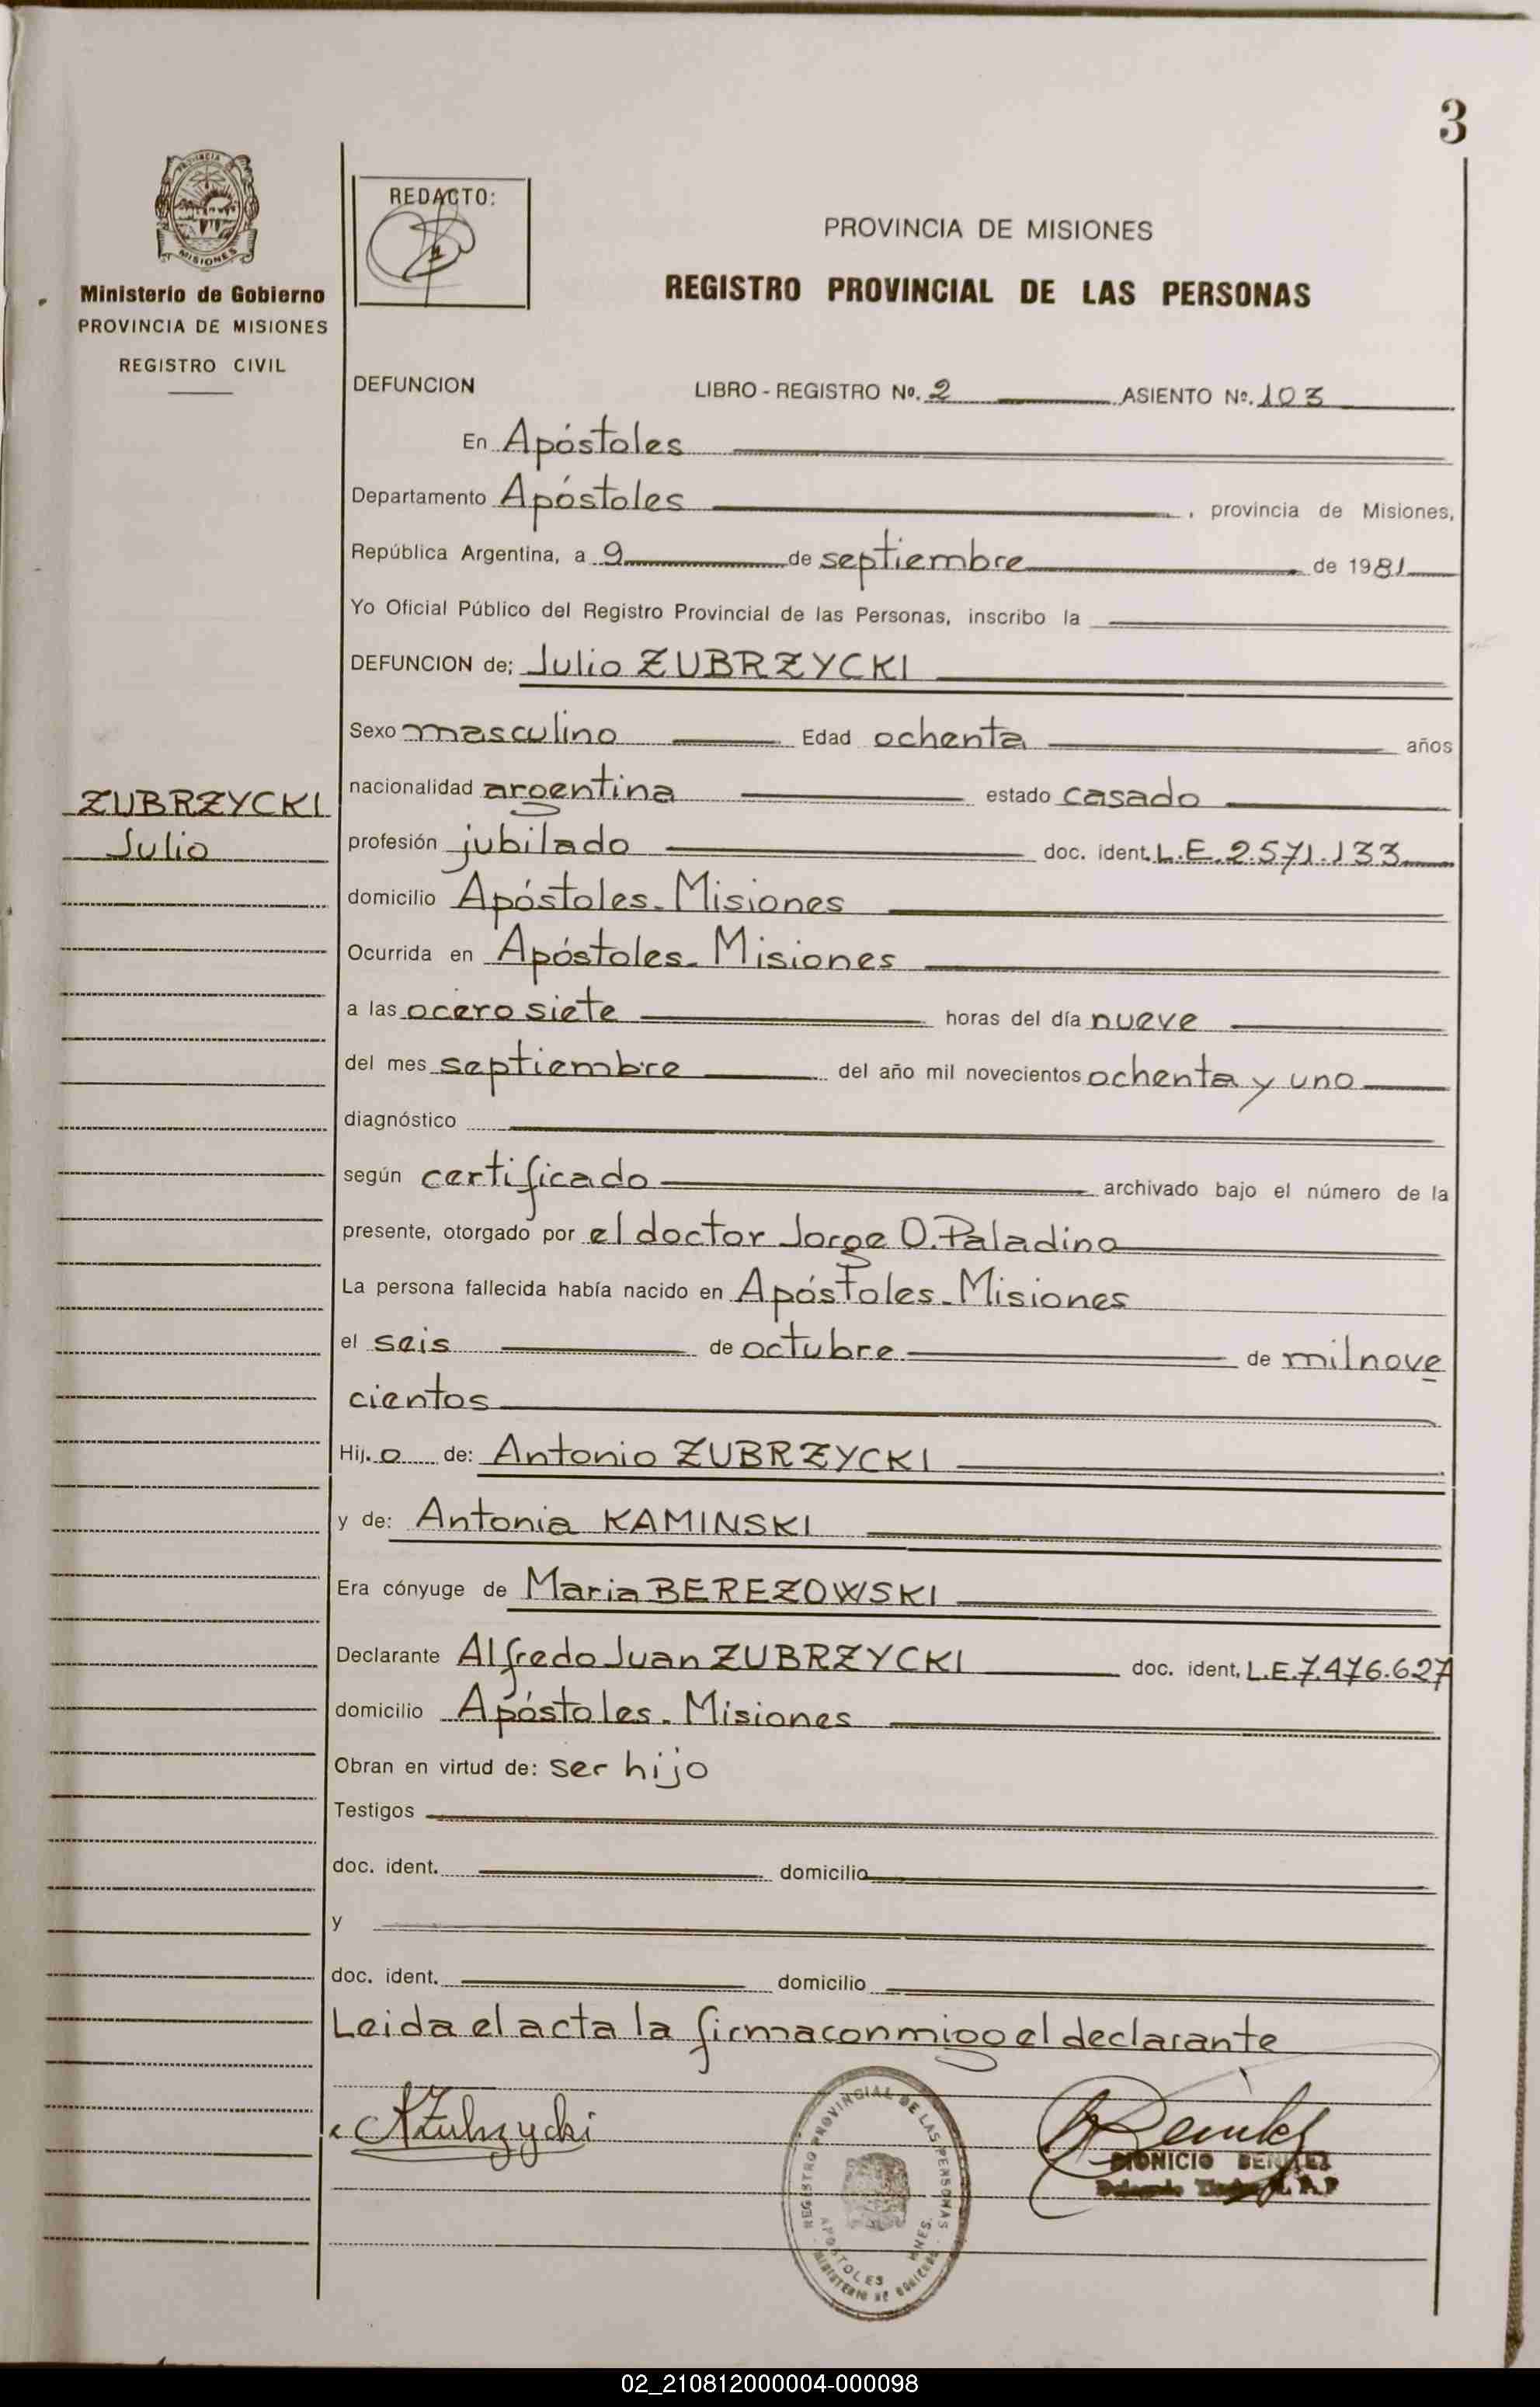 3
PROVINCIA
MISIONES
Ministerio de Gobierno
PROVINCIA DE MISIONES
REGISTRO CIVIL
REDACTO:
PROVINCIA DE MISIONES
REGISTRO PROVINCIAL DE LAS PERSONAS
DEFUNCION LIBRO - REGISTRO Nº. 2 ASIENTO Nº. 103
En Apóstoles
Departamento Apóstoles , provincia de Misiones,
República Argentina, a 9 de septiembre de 1981
Yo Oficial Público del Registro Provincial de las Personas, inscribo la
DEFUNCION de; Julio ZUBRZYCKI
Sexo masculino Edad ochenta años
ZUBRZYCKI
Julio
nacionalidad argentina estado casado
profesión jubilado doc. ident. L.E. 2.571.133
domicilio Apóstoles. Misiones
Ocurrida en Apóstoles. Misiones
a las ocero siete horas del día nueve
del mes septiembre del año mil novecientos ochenta y uno
diagnóstico
según certificado archivado bajo el número de la
presente, otorgado por el doctor Jorge O. Paladino
La persona fallecida había nacido en Apóstoles. Misiones
el seis de octubre de mil nove
cientos
Hij. o de: Antonio ZUBRZYCKI
y de: Antonia KAMINSKI
Era cónyuge de Maria BEREZOWSKI
Declarante Alfredo Juan ZUBRZYCKI doc. ident. L.E. 7.476.627
domicilio Apóstoles. Misiones
Obran en virtud de: ser hijo
Testigos
doc. ident. domicilio
y
doc. ident. domicilio
Leida el acta la firma conmigo el declarante
AZubrzycki
REGISTRO PROVINCIAL DE LAS PERSONAS
APOSTOLES MNES.
MINISTERIO DE GOBIERNO
DIONICIO BENITEZ
02_210812000004-000098